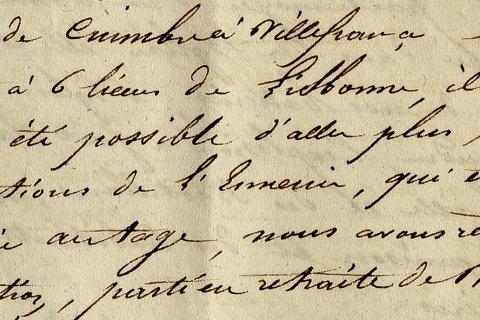 de Cuimbre à Villefrança
à 6 lieues de Lisbonne, il
été possible d'aller plus
tions de l'Ennemie, qui
au tage, nous avons re
parti en retraite de